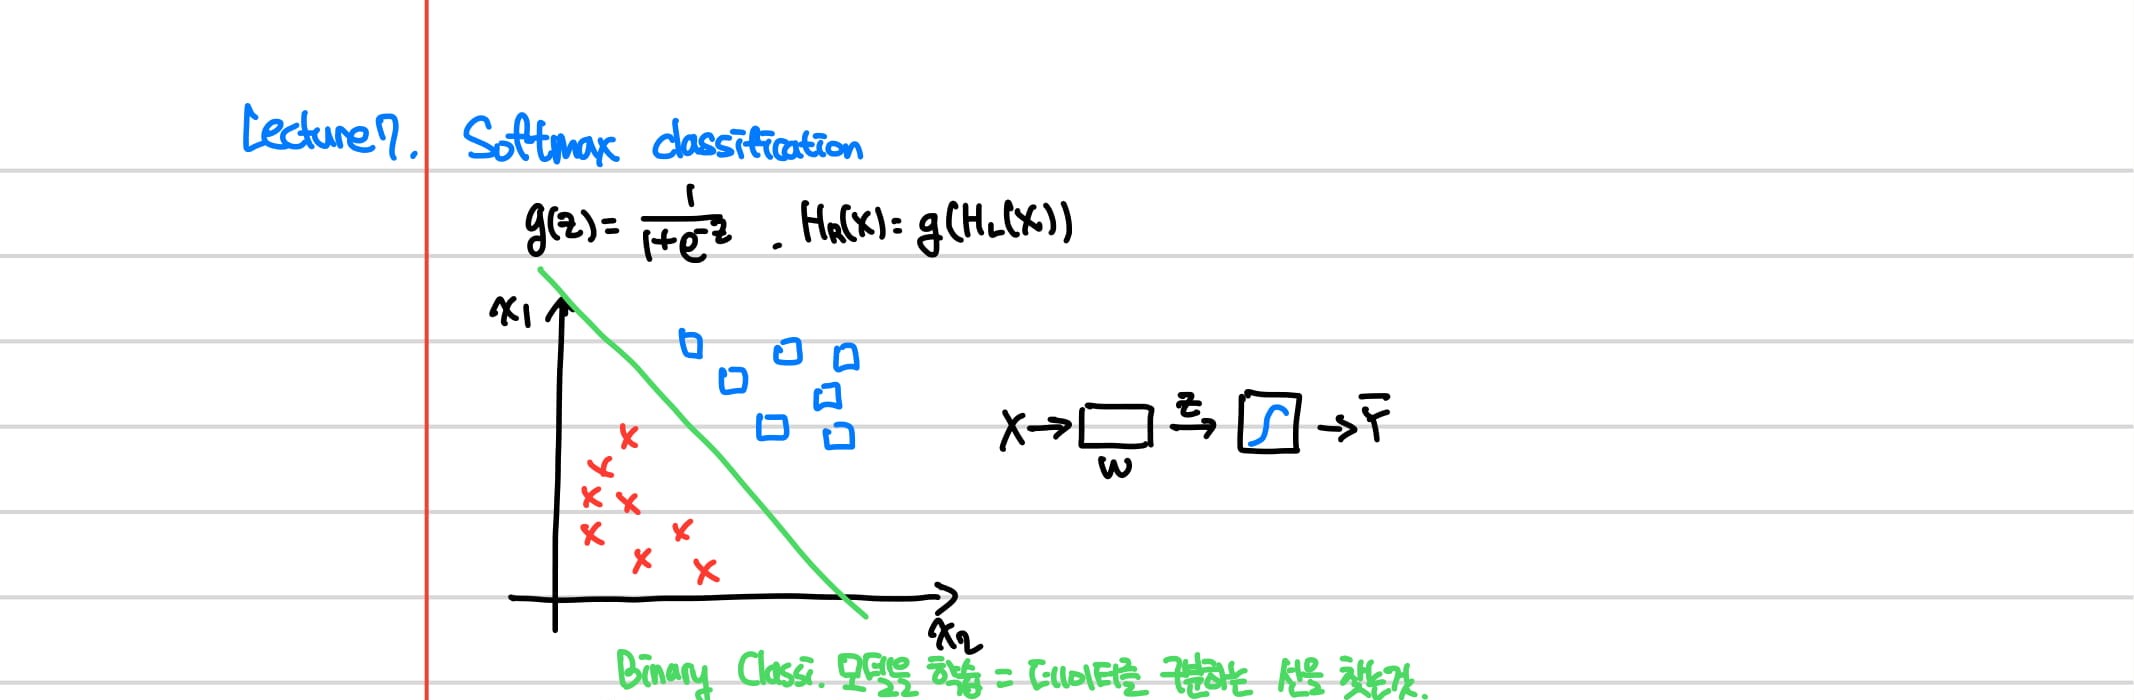 Lecture7. Softmax classification
g(z)= 1/(1+e^-z) . H_R(X)= g(H_L(X))
x1
X → z → → Y̅
W
x2
Binary Classi. 모델을 학습 = 데이터를 구분하는 선을 찾는것.